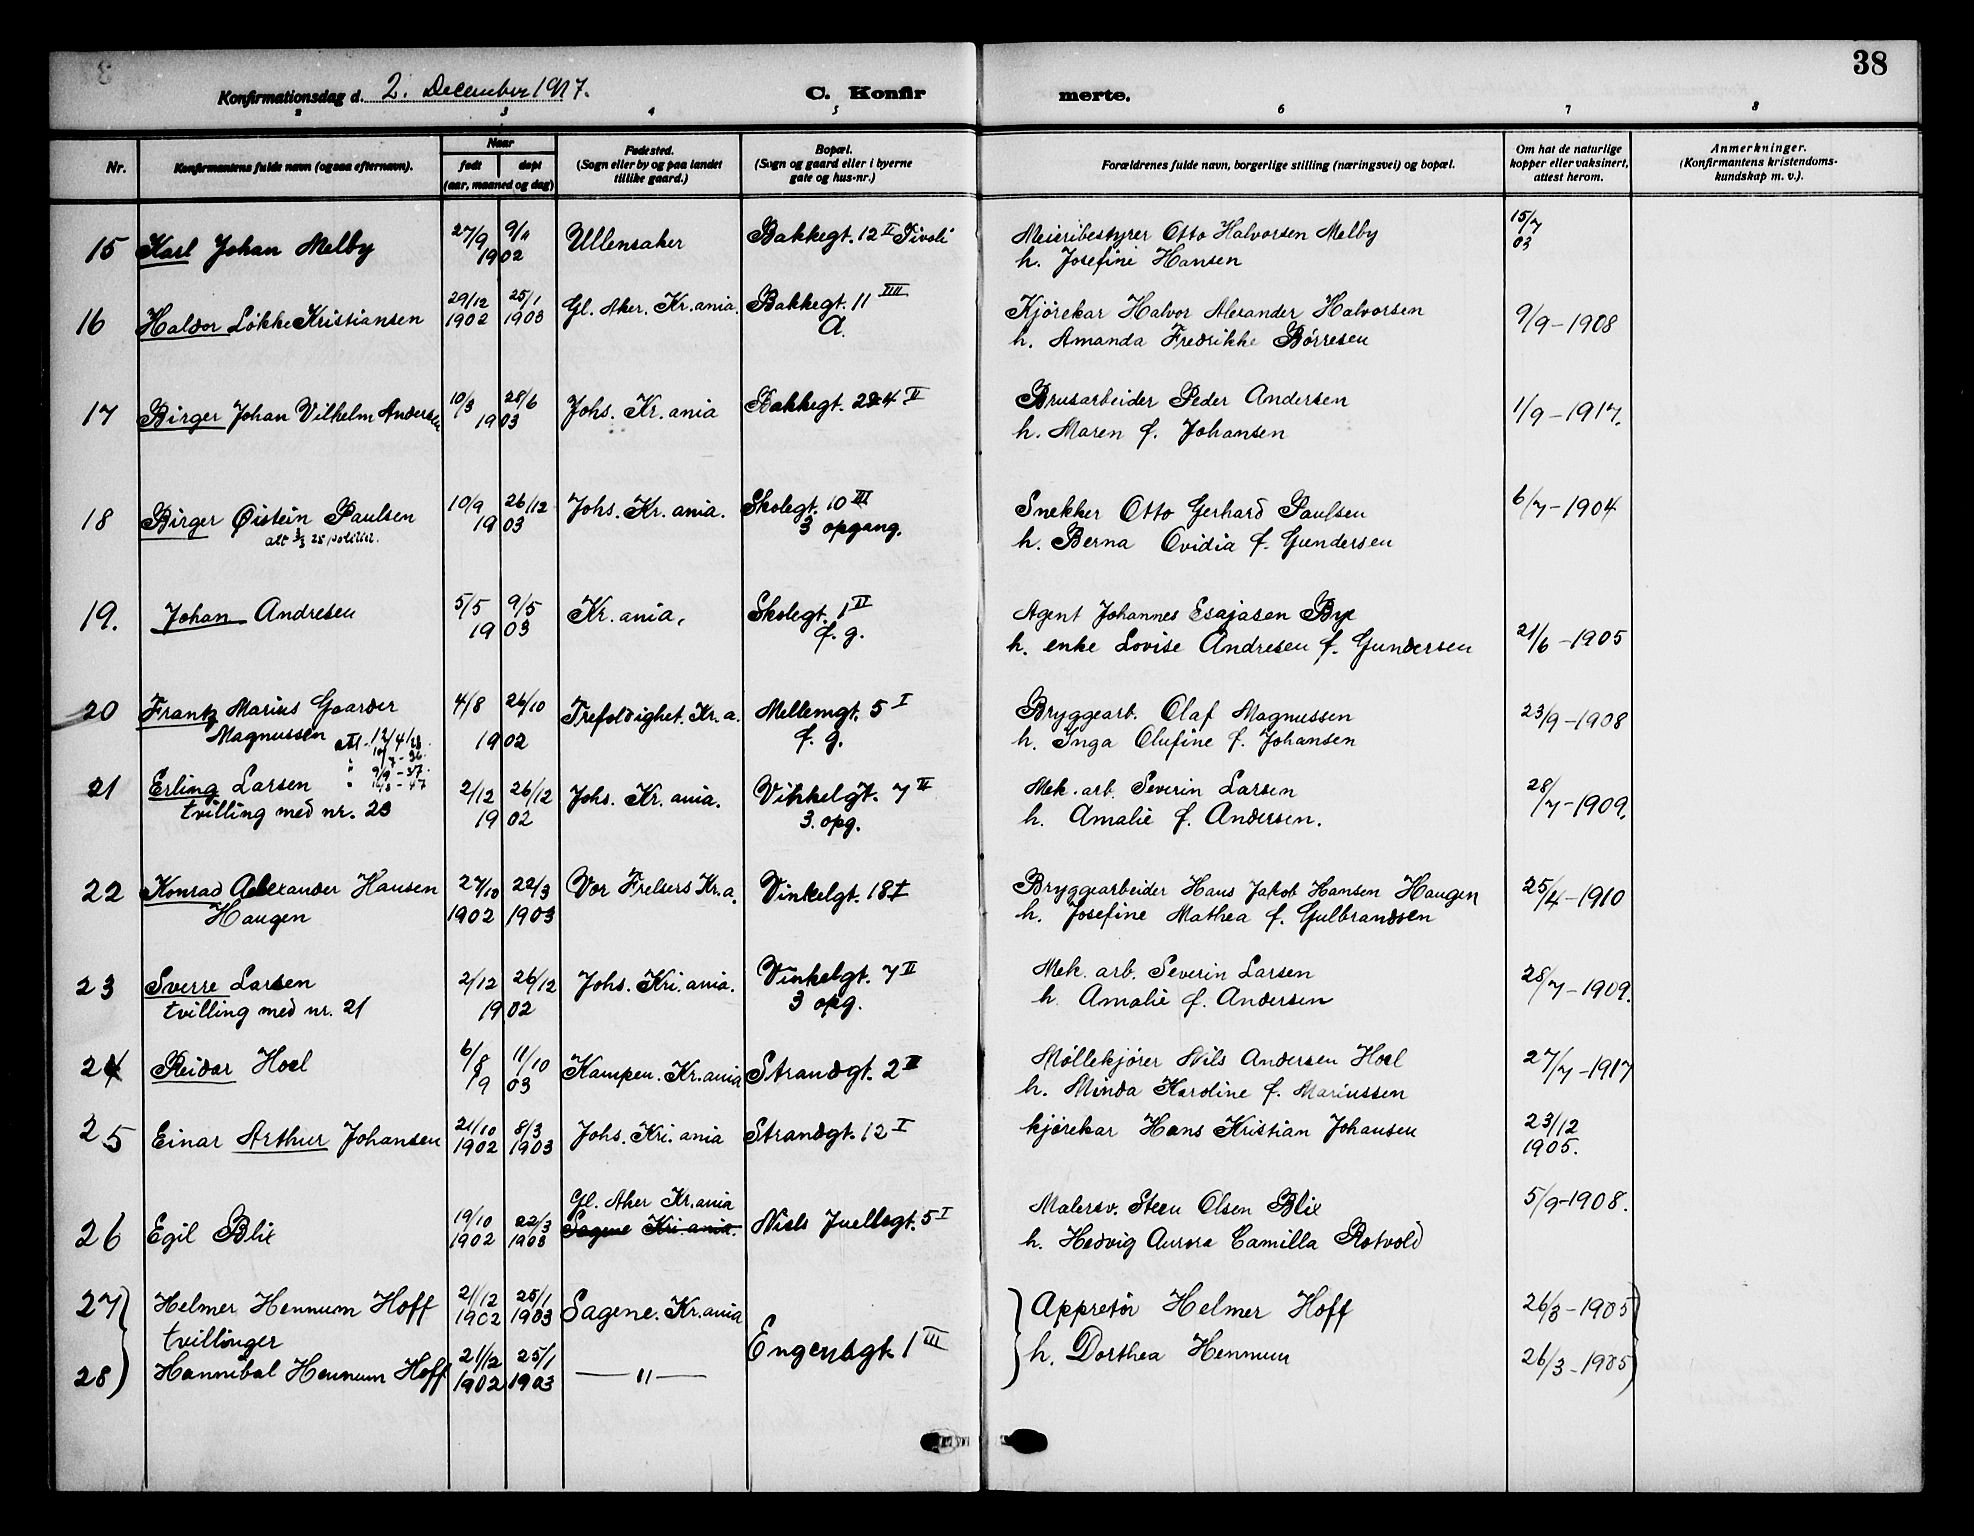 38
Konfirmationsdag d. 2. December 1917. C. Konfir merte.
2 3 4 5 6 7 8
Nr. Konfirmantens fulde navn (ogsaa efternavn). Naar født døpt (aar, maaned og dag) Fødested. (Sogn eller by og paa landet tillike gaard.) Bopæl. (Sogn og gaard eller i byerne gate og hus-nr.) Forældrenes fulde navn, borgerlige stilling (næringsvei) og bopæl. Om hat de naturlige kopper eller vaksinert, attest herom. Anmerkninger. (Konfirmantens kristendoms-kundskap m. v.).
15 Karl Johan Melby 27/9 9/11 Ullensaker Bakkegt. 12 II Tivoli Meieribestyrer Otto Halvorsen Melby 15/7 03
1902 h. Josefine Hansen
16 Haldor Løkke Kristiansen 29/12 1902 25/1 1903 Gl. Aker. Kr.ania. Bakkegt. 11 IIII A. Kjørekar Halvor Alexander Halvorsen 9/9-1908
h. Amanda Fredrikke Børresen
17 Birger Johan Vilhelm Andersen 10/3 28/6 Johs. Kr.ania Bakkegt. 24 II Brusarbeider Peder Andersen 1/9-1917.
1903 h. Maren f. Johansen
18 Birger Øistein Paulsen 10/9 26/12 Johs. Kr.ania. Skolegt. 10 III Snekker Otto Gerhard Paulsen 6/7-1904
1903 3 opgang. h. Berna Ovidia f. Gundersen
19. Johan Andresen 5/5 9/5 Kr.ania, Skolegt. 1 II Agent Johannes Esajasen Bye 21/6-1905
1903 f. g. h. enke Lovise Andresen f. Gundersen
20 Frantz Marius Gaarder 4/8 26/10 Trefoldighet. Kr.a. Mellemgt. 5 I Bryggearb. Olaf Magnussen 23/9-1908
Magnussen 1902 f. g. h. Inga Olufine f. Johansen
21 Erling Larsen 2/12 26/12 Johs. Kr.ania. Vinkelgt. 7 II Mek. arb. Severin Larsen 28/7-1909.
tvilling med nr. 23 1902 3. opg. h. Amalie f. Andersen.
22 Konrad Alexander Hansen 27/10 22/3 Vor Frelsers Kr.a. Vinkelgt. 18 I Bryggearbeider Hans Jakob Hansen Haugen 25/4-1910
Haugen 1902 1903 h. Josefine Mathea f. Gulbrandsen
23 Sverre Larsen 2/12 26/12 Johs. Kri.ania. Vinkelgt. 7 II Mek. arb. Severin Larsen 28/7-1909.
tvilling med nr. 21 1902 3 opg. h. Amalie f. Andersen
24 Reidar Hoel 6/8 11/10 Kampen. Kr.ania Strandgt. 2 II Møllekjører Nils Andersen Hoel 27/7-1917
1903 h. Minda Karoline f. Mariussen
25 Einar Arthur Johansen 21/10 1902 8/3 1903 Johs. Kri.ania Strandgt. 12 I kjørekar Hans Kristian Johansen 23/12 1905.
26 Egil Blix 19/10 1902 22/3 1903 Gl. Aker Kr.ania Sagene Kri.ania. Niels Juellsgt. 5 I Malersv. Steen Olsen Blix 5/9-1908.
h. Hedvig Aurora Camilla Rotvold
27 Helmer Hennum Hoff 21/12 1902 25/1 1903 Sagene. Kr.ania Appretør Helmer Hoff 26/3-1905
tvillinger Engensgt. 1 III
28 Hannibal Hennum Hoff 21/12 1902 25/1 1903 — " — h. Dorthea Hennum 26/3-1905